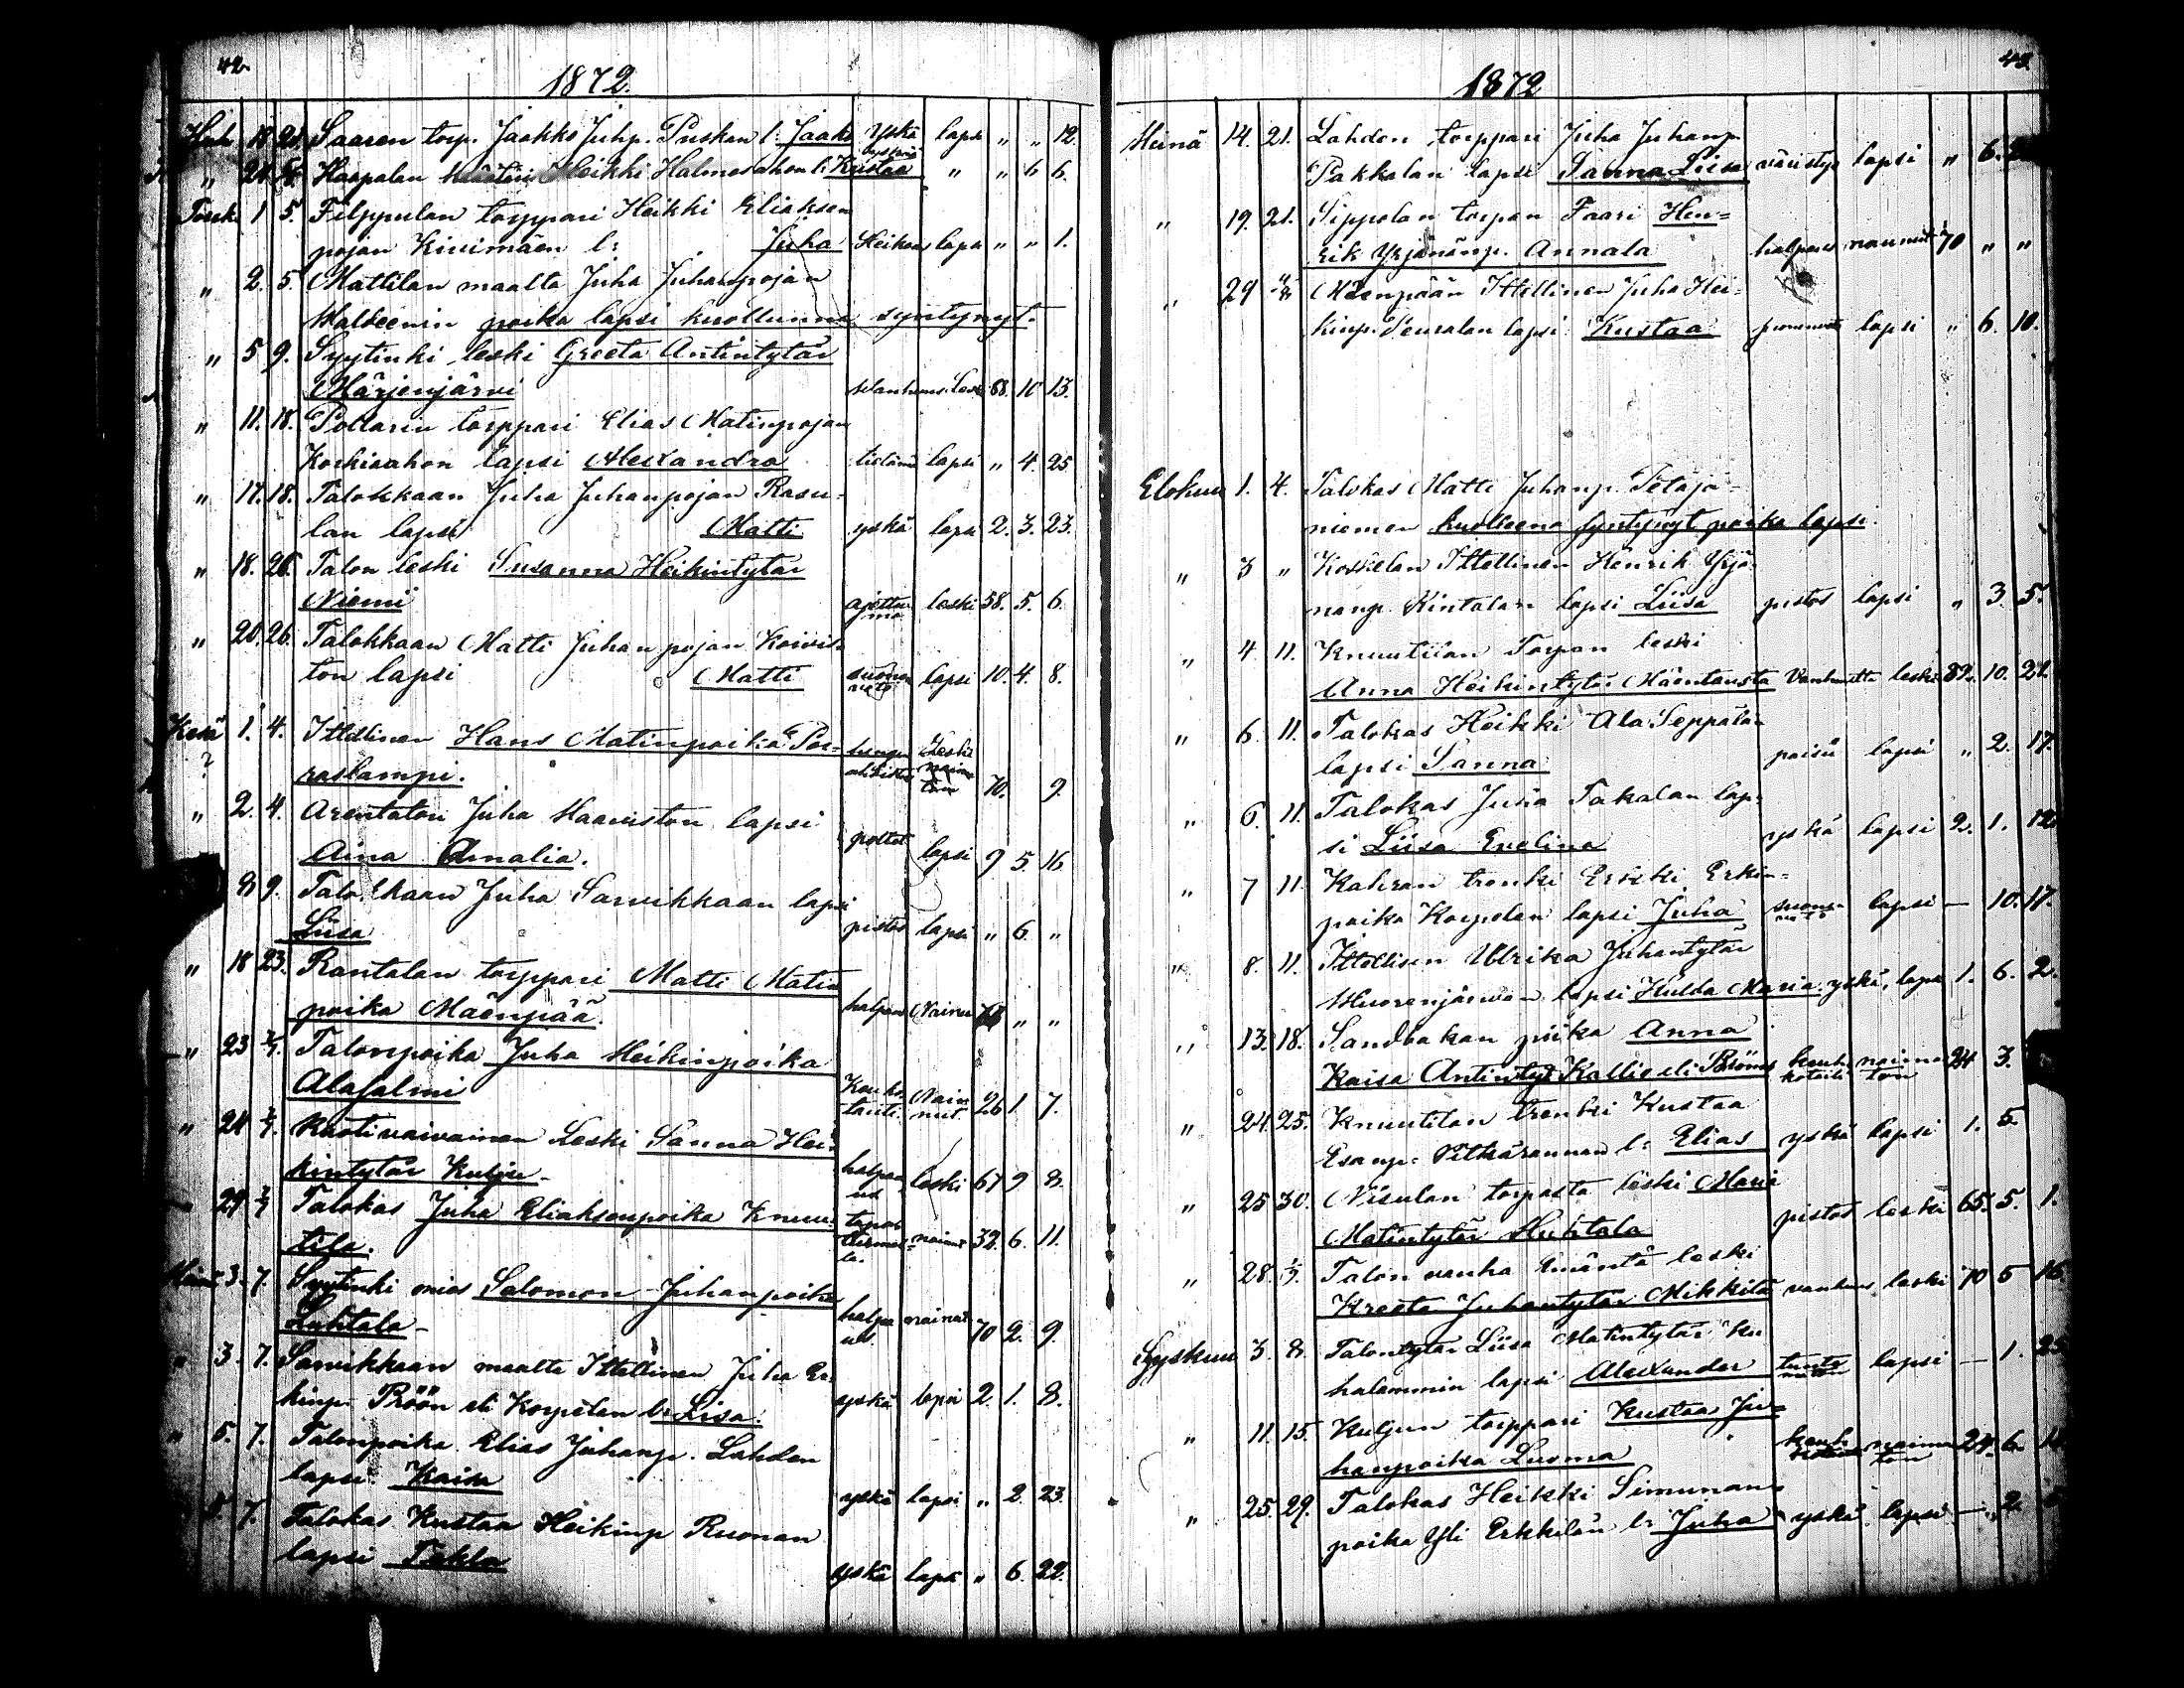 42.
1872.
Huh. 18. 21. Saaren torp. Jaakko Juhp. Puskan l: Jaako yskä lapsi " " 12.
" 24. Haapalan Heikki Halmesahon l: Kustaa " " 6 6.
Touk. 1 5. Filppulan torppari Heikki Eliaksen
pojan Kivimäen l: Juha Heikous lapsi " " 1.
" 2. 5. Mattilan maalta Juha Juhanpojan
poika lapsi kuolluna syntynyt.
" 5 9. Syytinki leski Greeta Antintytär
Märjenjärvi Leski 68. 10 13.
" 11. 18. Pollarin torppari Elias Matinpojan
Koskisahon lapsi Alexandra lapsi " 4. 25.
" 17. 18. Talokkaan Juha Juhanpojan Rasu-
lan lapsi Matti yskä lapsi 2. 3. 23.
" 18. 26. Talon leski Susanna Heikintytär
Niemi ajettu ma leski 58. 5. 6.
" 20. 26. Talokkaan Matti Juhanpojan Koivis-
ton lapsi Matti suonen veto lapsi 10. 4. 8.
Kesä 1. 4. Ittellinen Hans Matinpoika Por-
raslampi. Leski naima ton 70. 9.
?
" 2. 4. Arentaton Juha Haaviston lapsi
Aina Amalia. poltet lapsi 9 5. 16.
8 9. Talokkaan Juha Sarvikkaan lapsi
Liisa pistos lapsi " 6. "
" 18 23. Rantalan torppari Matti Matin
poika Mäenpää. halpaus Nainu " "
" 23 2/7. Talonpoika Juha Heikinpoika
Alasalmi Keuhko tauti Nain nut 26 1. 7.
" 24 2/7. Ruotivaivainen Leski Sanna Hei-
kintytär Kulju. halpau us leski 67 9 8.
29 2/7 Talokas Juha Eliaksenpoika Knuu-
tila. nainut 32. 6. 11.
Heinä 3. 7. Syytinki mies Salomon Juhanpoika
Luhtala halpa us. nainut 70 2. 9.
" 3. 7. Sarvikkaan maalta Ittellinen Juha Er-
kinp. Pröön eli Korpelan l: Liisa. yskä lapsi 2. 1. 8.
" 5. 7. Talonpoika Elias Juhanp. Lahden
lapsi Kaisa yskä lapsi " 2. 23.
5. 7. Talokas Kustaa Heikinp Ruonan
lapsi Tekla yskä lapsi " 6. 22.
43.
1872
Heinä 14. 21. Lahden torppari Juha Juhanp.
Pakkalan lapsi Sanna Liisa väristys lapsi " 6.
" 19. 21. Sippolan torpan Faari Hen-
rik Yrjänänp. Annala halpaus nainut 70 " "
" 29 4/8 Mäenpään Ittellinen Juha Hei-
kinp. Seuralan lapsi Kustaa lapsi " 6. 10.
Elokuu 1. 4. Talokas Matti Juhanp. Petäjä-
niemen kuolleena syntynyt poika lapsi.
" 3 " Koskelan Ittellinen Henrik Yrjä-
nänp. Rintalan lapsi Liisa pistos lapsi " 3. 5.
" 4 11. Knuutilan Torpan leski
Anna Heikintytär Mäentausta Vanhuutta leski 82. 10. 21.
" 6. 11. Talokas Heikki Ala Seppälän
lapsi Sanna paisu lapsi " 2. 17.
" 6. 11. Talokas Juha Takalan lap-
si Liisa Evelina yskä lapsi 2. 1. 12
" 7 11. Kahran trenki Erkki Erkin-
poika Korpelan lapsi Juha suonen veto lapsi — 10. 17.
" 8. 11. Ittellisen Ulrika Juhantytär
Wuorenjärven lapsi Hulda Maria yskä, lapsi 1. 6. 2.
" 13. 18. Sandbakan piika Anna
Kaisa Antintyt Kallio eli naima ton 24 3.
" 24. 25. Knuutilan trenki Kustaa
Esanp: Pitkärannan l: Elias yskä lapsi 1. 5.
" 25 30. Nisulan torpasta leski Maria
Matintytär Huhtala pistos leski 65. 5. 1.
" 28. 1/9. Talon vanha Emäntä leski
Kreeta Juhantytär Mikkilä vanhuus leski 70 5 16
Syskuu 3. 8. Talontytär Liisa Matintytär Ku-
halammin lapsi Alexander tunte maton lapsi — 1. 25
" 11. 15. Kuljun torppari Kustaa Ju-
hanpoika Luoma naima ton 24. 6.
" 25. 29. Talokas Heikki Simunan-
poika Yli Erkkilän l: Juha yskä lapsi — 2.